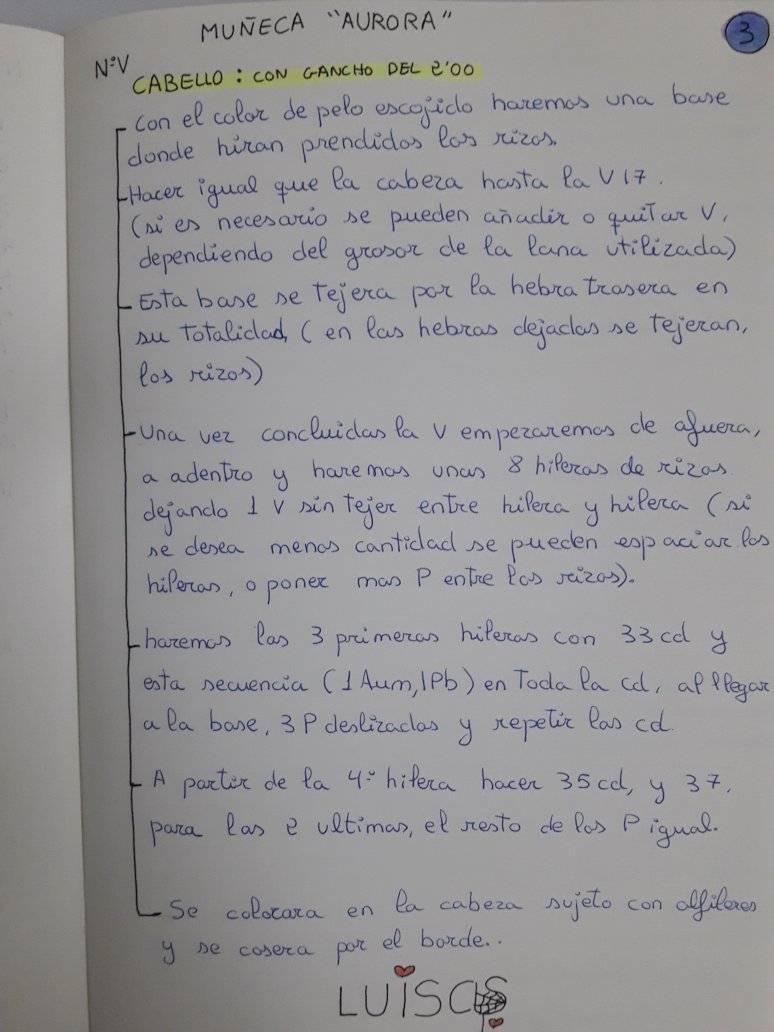 MUÑECA "AURORA"
3
Nº V
CABELLO: CON GANCHO DEL 2'00
Con el color de pelo escojido haremos una base
donde hiran prendidos los rizos.
Hacer igual que la cabeza hasta la V 17.
(si es necesario se pueden añadir o quitar V,
dependiendo del grosor de la lana utilizada)
Esta base se tejera por la hebra trasera en
su totalidad, (en las hebras dejadas se tejeran,
los rizos)
Una vez concluidas la V empezaremos de afuera,
a adentro y haremos unas 8 hileras de rizos
dejando 1 V sin tejer entre hilera y hilera (si
se desea menos cantidad se pueden espaciar las
hileras, o poner mas P entre los rizos).
haremos las 3 primeras hileras con 33 cd y
esta secuencia (1 Aum, 1 Pb) en toda la cd, al llegar
a la base, 3 P deslizadas y repetir las cd.
A partir de la 4ª hilera hacer 35 cd, y 37,
para las 2 ultimas, el resto de los P igual.
Se colocara en la cabeza sujeto con alfileres
y se cosera por el borde..
LUISCS